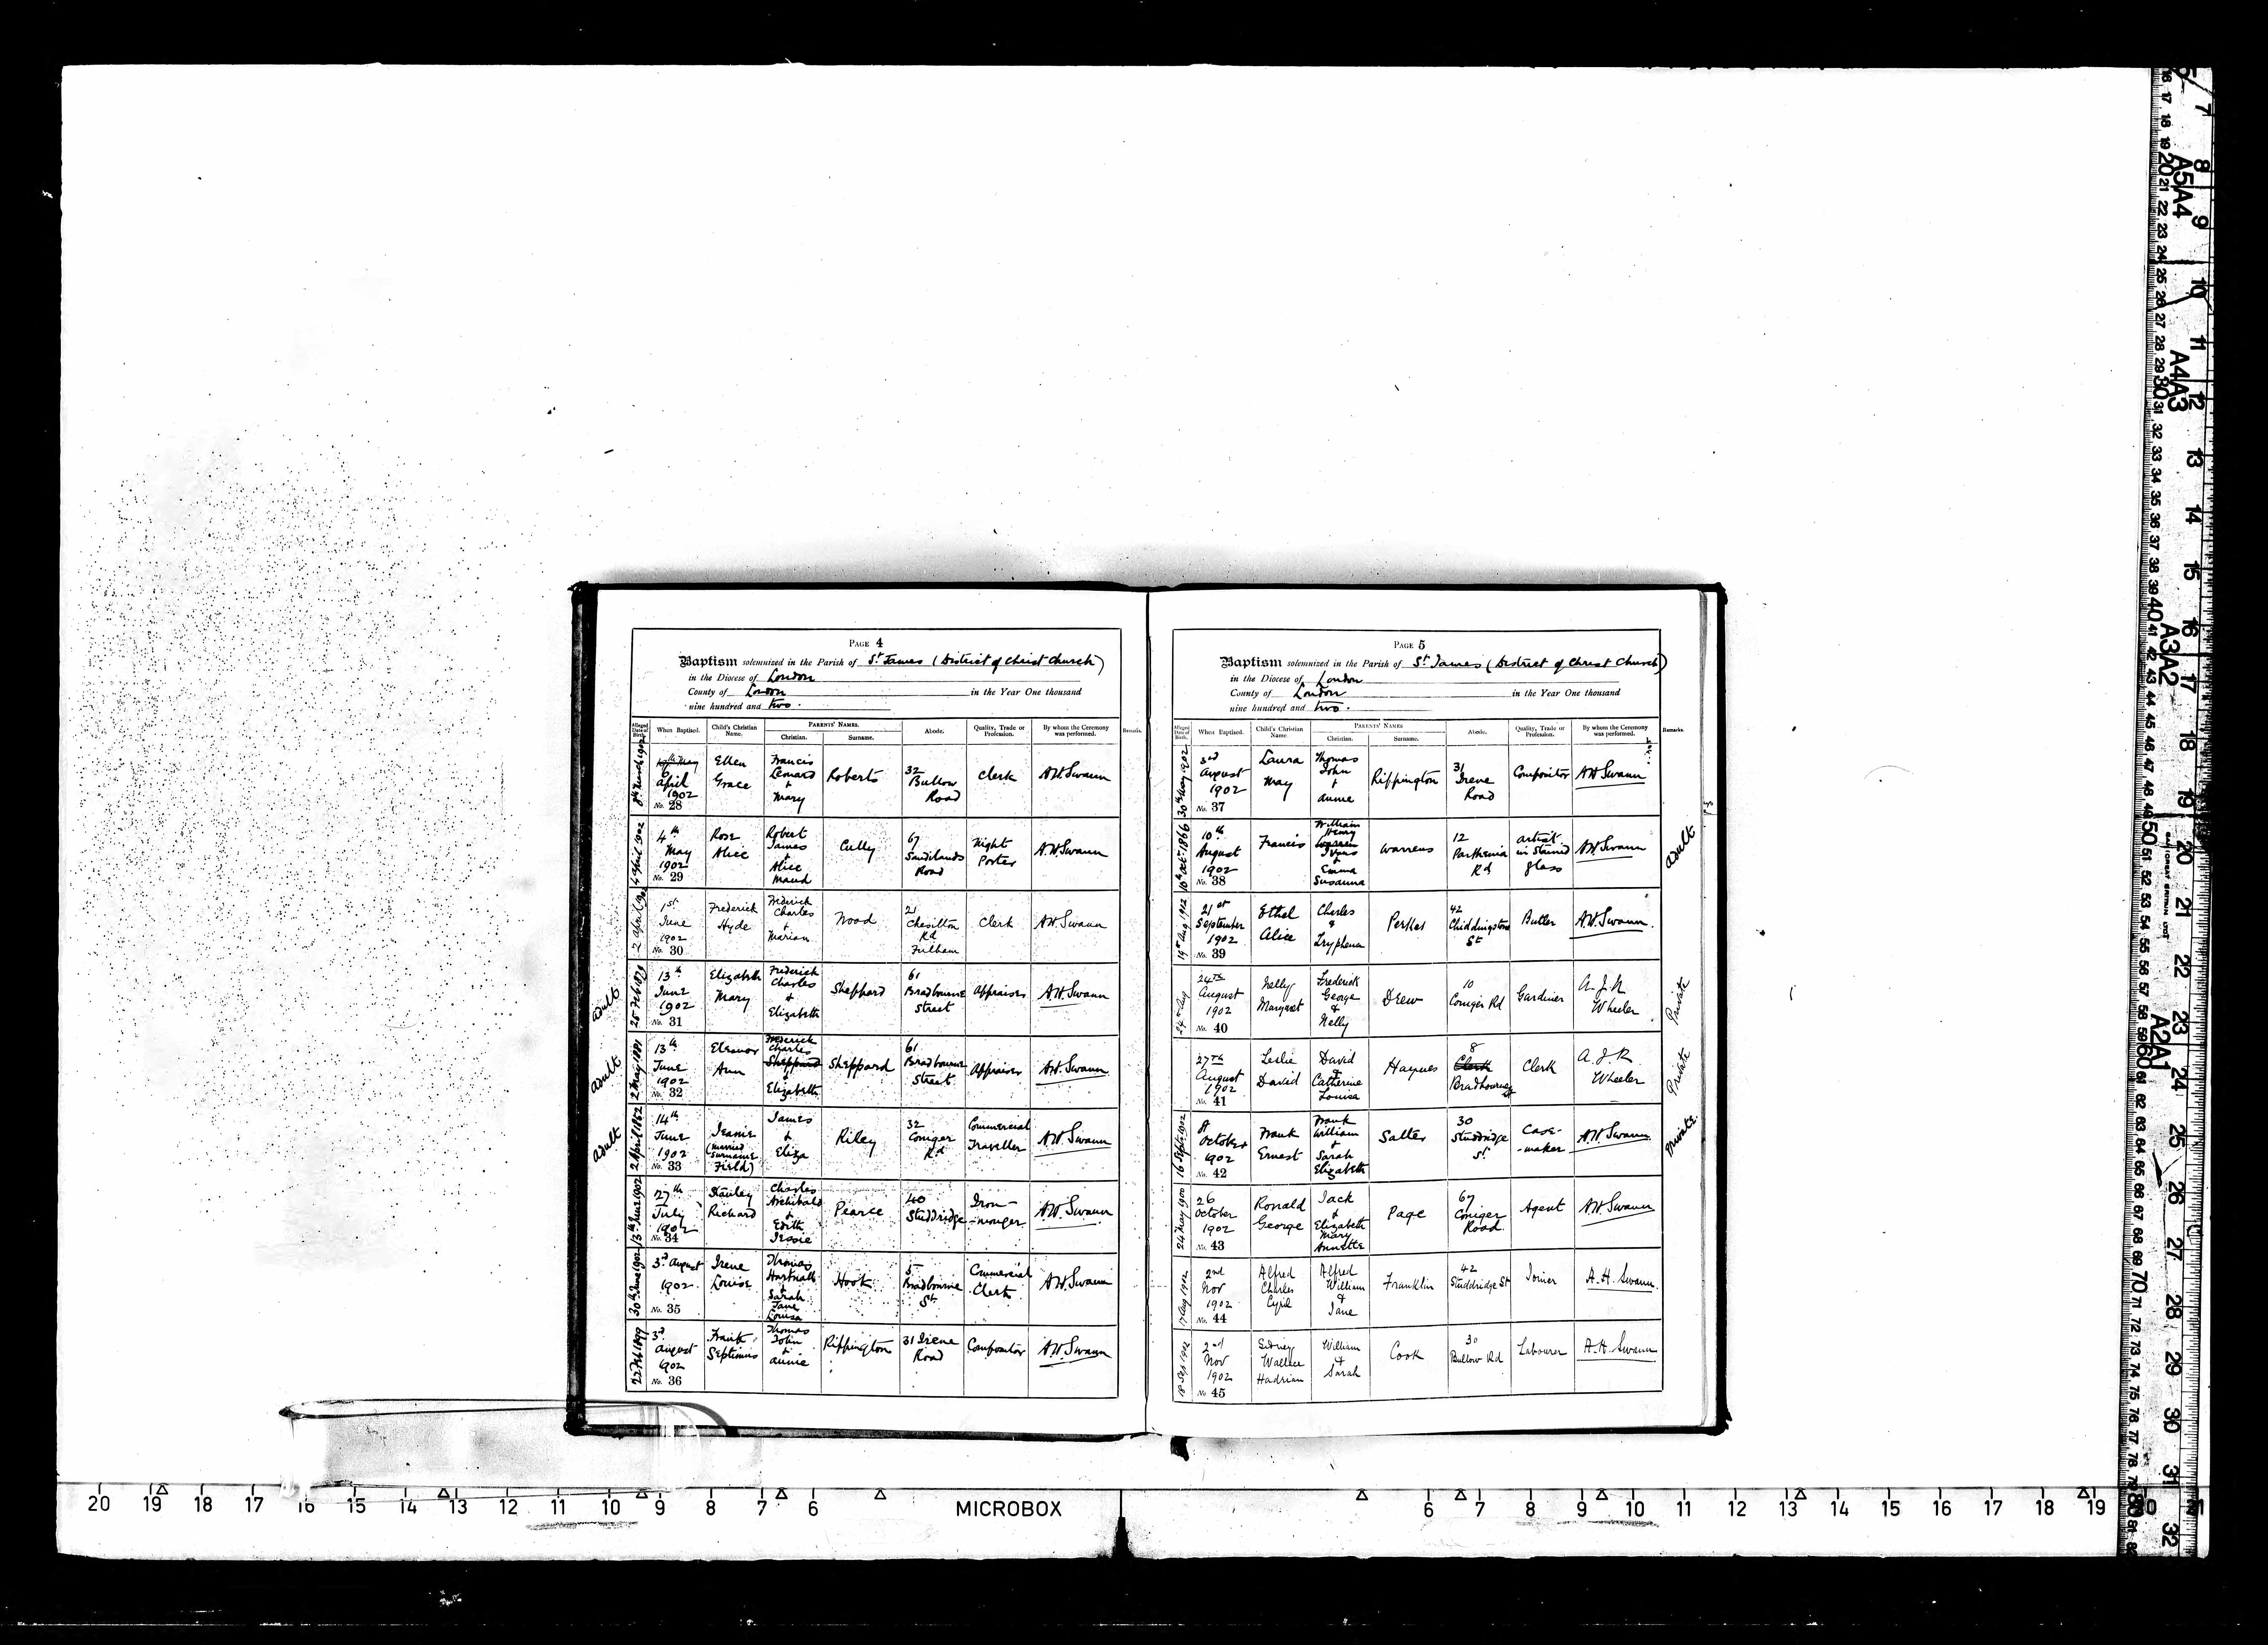 PAGE 4
Baptism solemnized in the Parish of St. James (District of Christ Church)
in the Diocese of London
County of London in the Year One thousand
nine hundred and two.
Alleged Date of Birth.
When Baptised.
Child's Christian Name.
PARENTS' NAMES.
Christian.
Surname.
Abode.
Quality, Trade or Profession.
By whom the Ceremony was performed.
Remarks.
8th March 1902
6
April
1902
No. 28
Ellen
Grace
Francis
Leonard
+
Mary
Roberts
32
Bullow
Road
Clerk
A.H. Swann
4 April 1902
4th
May
1902
No. 29
Rose
Alice
Robert
James
+
Alice
Maud
Culley
67
Sandilands
Road
Night
Porter
A.H. Swann
2 April 1902
1st
June
1902
No. 30
Frederick
Hyde
Frederick
Charles
+
Marian
Wood
21
Chesilton
Rd
Fulham
Clerk
A.H. Swann
Adult
13th
June
1902
No. 31
Elizabeth
Mary
Frederick
Charles
+
Elizabeth
Sheppard
61
Bradbourne
Street
Appraiser
A.H. Swann
Adult
2 May 1881
13th
June
1902
No. 32
Eleanor
Ann
Frederick
Charles
Sheppard
Elizabeth
Sheppard
61
Bradbourne
Street
Appraiser
A.H. Swann
Adult
2 April 1862
14th
June
1902
No. 33
Jeanie
(married
surname
Field)
James
+
Eliza
Riley
32
Coniger
Rd
Commercial
Traveller
A.H. Swann
13th June 1902
27th
July
1902
No. 34
Stanley
Richard
Charles
Archibald
+
Edith
Jessie
Pearce
40
Studdridge
Iron-
-monger
A.H. Swann
30th June 1902
3rd August
1902
No. 35
Irene
Louise
Thomas
+
Sarah
Jane
Louisa
Hook
5
Bradbourne
St.
Commercial
Clerk
A.H. Swann
22 Feb 1899
3rd
August
1902
No. 36
Frank
Septimus
Thomas
John
+
Annie
Rippington
31 Irene
Road
Compositor
A.H. Swann
PAGE 5
Baptism solemnized in the Parish of St. James (District of Christ Church)
in the Diocese of London
County of London in the Year One thousand
nine hundred and two.
Alleged Date of Birth.
When Baptised.
Child's Christian Name.
PARENTS' NAMES
Christian.
Surname.
Abode.
Quality, Trade or Profession.
By whom the Ceremony was performed.
Remarks.
30th May 1902
3rd
August
1902
No. 37
Laura
May
Thomas
John
+
Annie
Rippington
31
Irene
Road
Compositor
A.H. Swann
10th Oct. 1866
10th
August
1902
No. 38
Francis
William
Henry
Evans
+
Emma
Susanna
Warrens
12
Parthenia
Rd
Artist
in Stained
glass
A.H. Swann
Adult
19th Aug 1902
21st
September
1902
No. 39
Ethel
Alice
Charles
&
Tryphena
Perkes
42
Chiddingstone
St
Butler
A.H. Swann
24th Aug
24th
August
1902
No. 40
Nelly
Margaret
Frederick
George
&
Nelly
Drew
10
Coniger Rd
Gardiner
A. J. R
Wheeler
Private
27th
August
1902
No. 41
Leslie
David
David
&
Catherine
Louisa
Haynes
8
Clerk
Bradbourne St
Clerk
A. J. R
Wheeler
Private
16 Sept. 1902
8
October
1902
No. 42
Frank
Ernest
Frank
William
+
Sarah
Elizabeth
Salter
30
Studdridge
St.
Case-
-maker
A.H. Swann
Private
24 May 1900
26
October
1902
No. 43
Ronald
George
Jack
+
Elizabeth
Mary
Annette
Page
67
Coniger
Road
Agent
A.H. Swann
17 Aug 1902
2nd
Nov
1902
No. 44
Alfred
Charles
Cyril
Alfred
William
&
Jane
Franklin
42
Studdridge St
Joiner
A. H. Swann
18 Sep 1902
2nd
Nov
1902
No. 45
Sidney
Wallace
Hadrian
William
&
Sarah
Cook
30
Bullow Rd
Labourer
A. H. Swann
20 19 18 17 16 15 14 13 12 11 10 9 8 7 6 MICROBOX 6 7 8 9 10 11 12 13 14 15 16 17 18 19 20 21
A5 A4
A4 A3
A3 A2
A2 A1